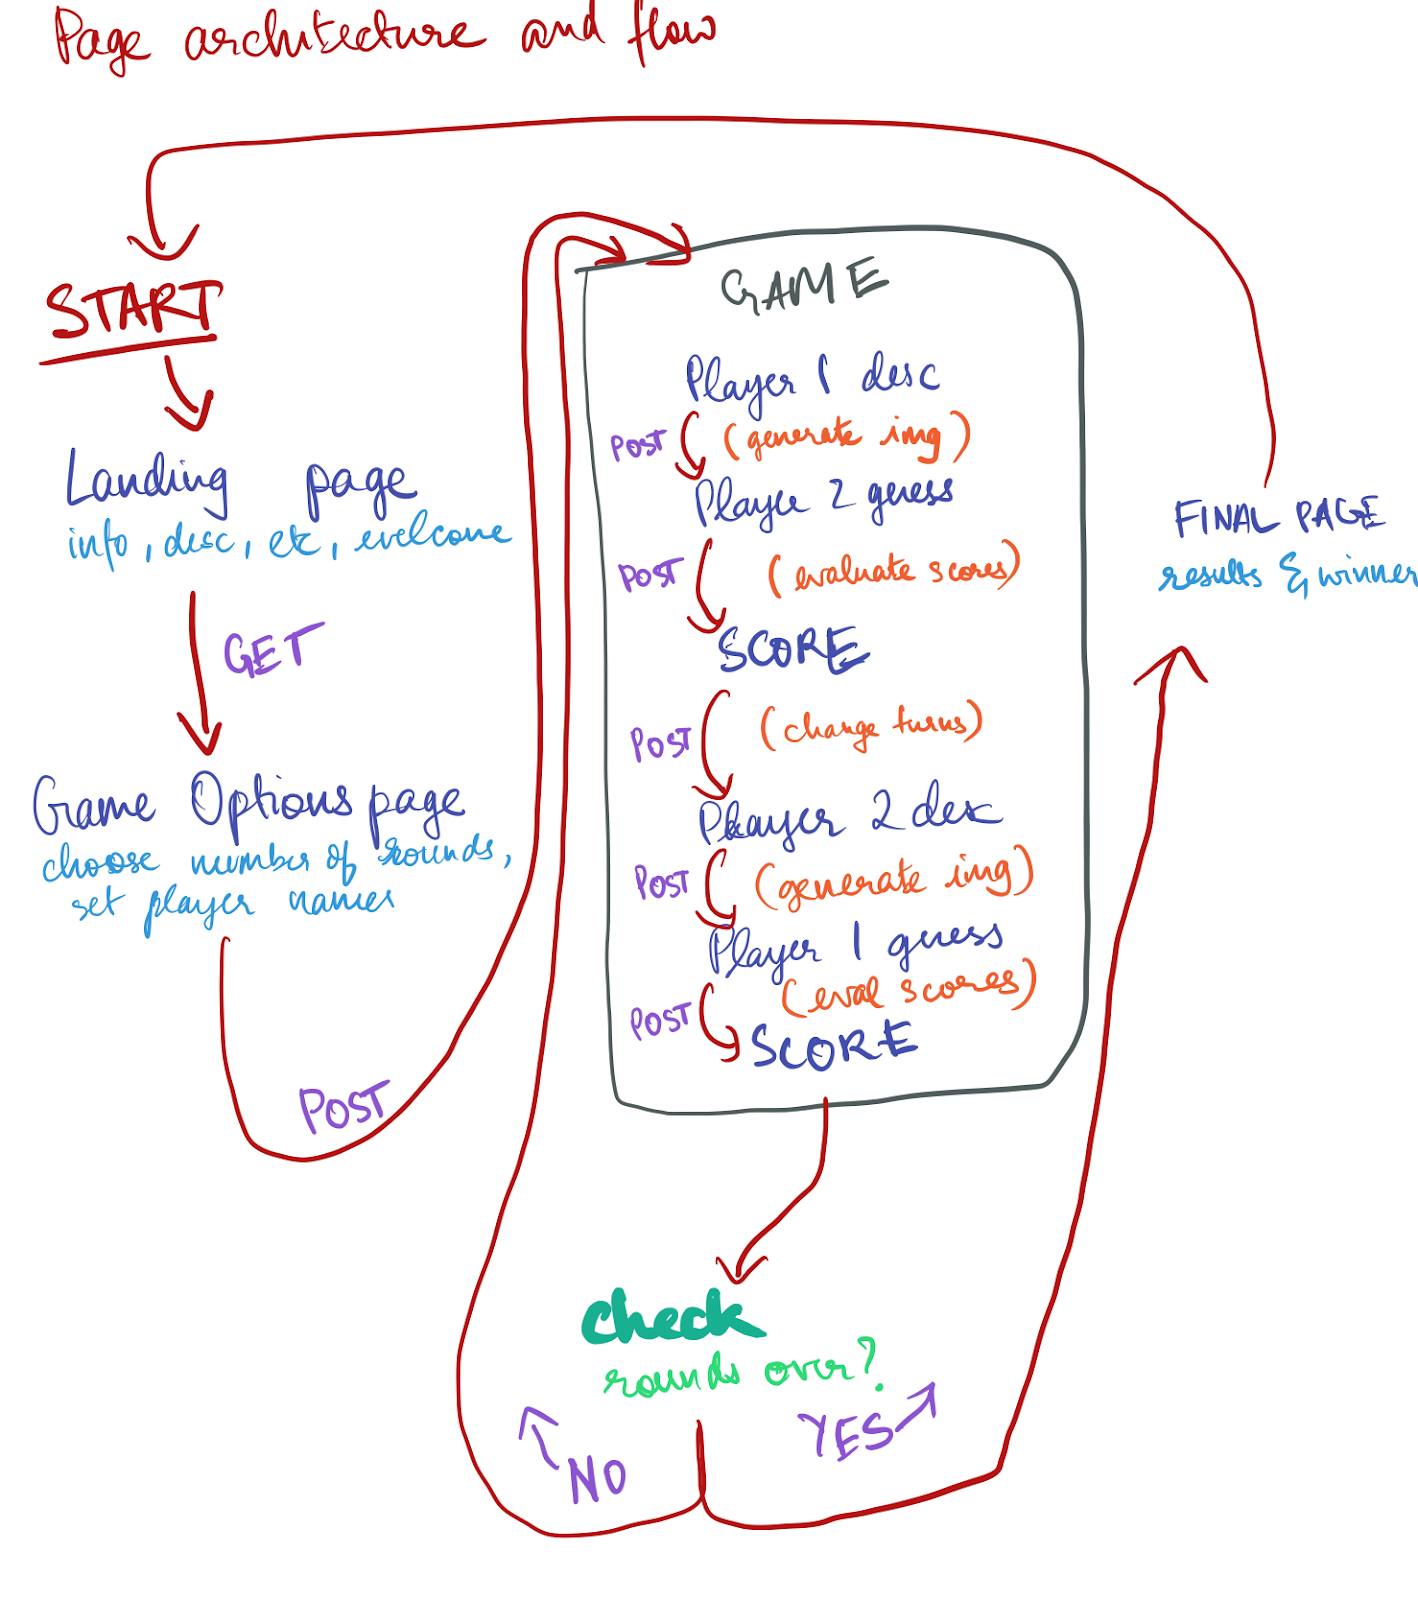 Page architecture and flow
START
Landing page
info, desc, etc, welcome
GET
Game Options page
choose number of rounds,
set player names
POST
GAME
Player 1 desc
POST (generate img)
Player 2 guess
POST (evaluate scores)
SCORE
POST (change turns)
Player 2 desc
POST (generate img)
Player 1 guess
POST (eval scores)
SCORE
check
rounds over?
NO
YES
FINAL PAGE
results & winner